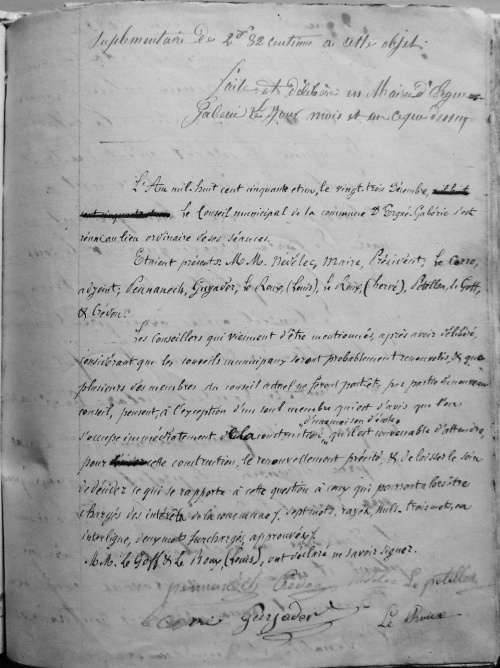 Suplementaire de 2f 32 centime a cette objet
Faite et délibéré en Mairie d'Ergue
Galeric les jour mois et an ceque dessus
L'An mil-huit cent cinquante et un, le vingt-trois Décembre,
le Conseil municipal de la commune D'Ergué-Gabéric s'est
réuni au lieu ordinaire de ses séances.
Etaient présents: M.M. Nédélec, Maire, Président, Le Corre,
adjoint, Pennanech, Guyader, Le Roux, (Louis), Le Roux, (hervé), Pétillon, Le Goff,
& Crédou.
Les conseillers qui viennent d'être mentionnés, après avoir délibéré,
considérant que les conseils municipaux seront probablement renouvelés, & que
plusieurs des membres du conseil actuel ne feront peut-être pas partie du nouveau
conseil, pensent, à l'exception d'un seul membre qui est d'avis que l'on
d'une maison d'école
s'occupe immédiatement de la construction, qu'il est convenable d'attendre,
pour cette construction, le renouvellement précité, & de laisser le soin
de décider ce qui se rapporte à cette question à ceux qui pourront alors être
chargés des intérêts de la commune /. sept mots, rayés, nuls. trois mots, en
interligne, deux mots surchargés, approuvés /.
M.M. Le Goff & Le Roux, (Louis), ont déclaré ne savoir signer.
pennanech Crédou Nédélec Le petillon
Guyader Le Roux